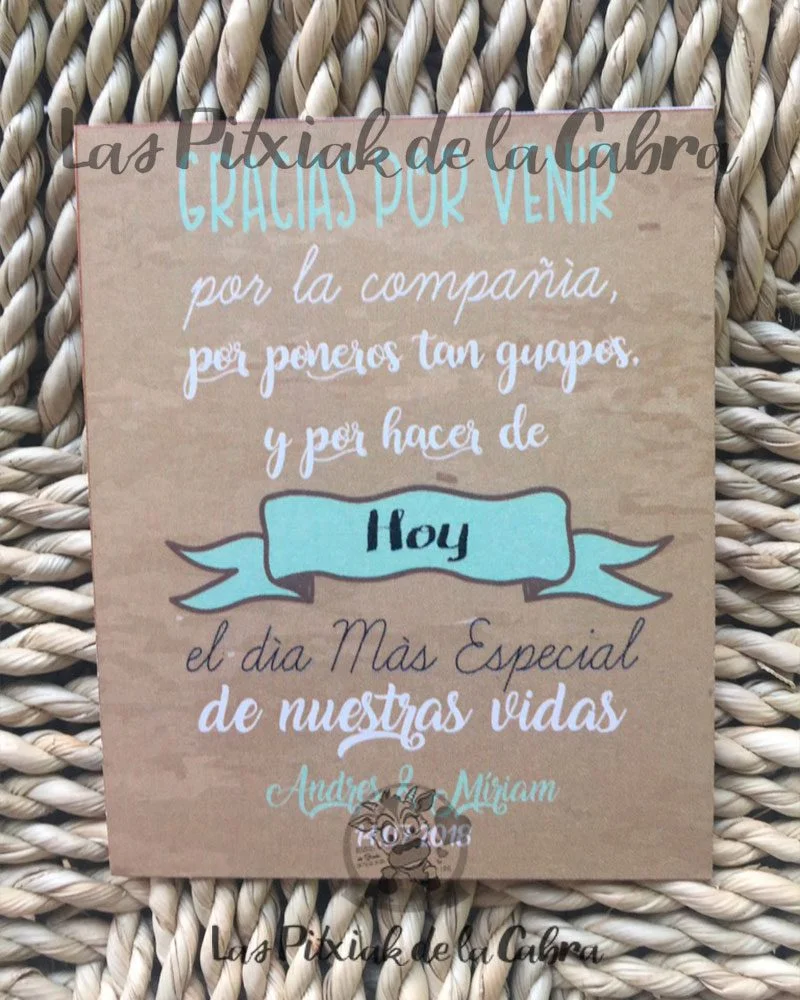 Las Pitxiak de la Cabra
GRACIAS POR VENIR
por la compañìa,
por poneros tan guapos.
y por hacer de
Hoy
el dìa Màs Especial
de nuestras vidas
Andres & Míriam
2018
Las Pitxiak de la Cabra